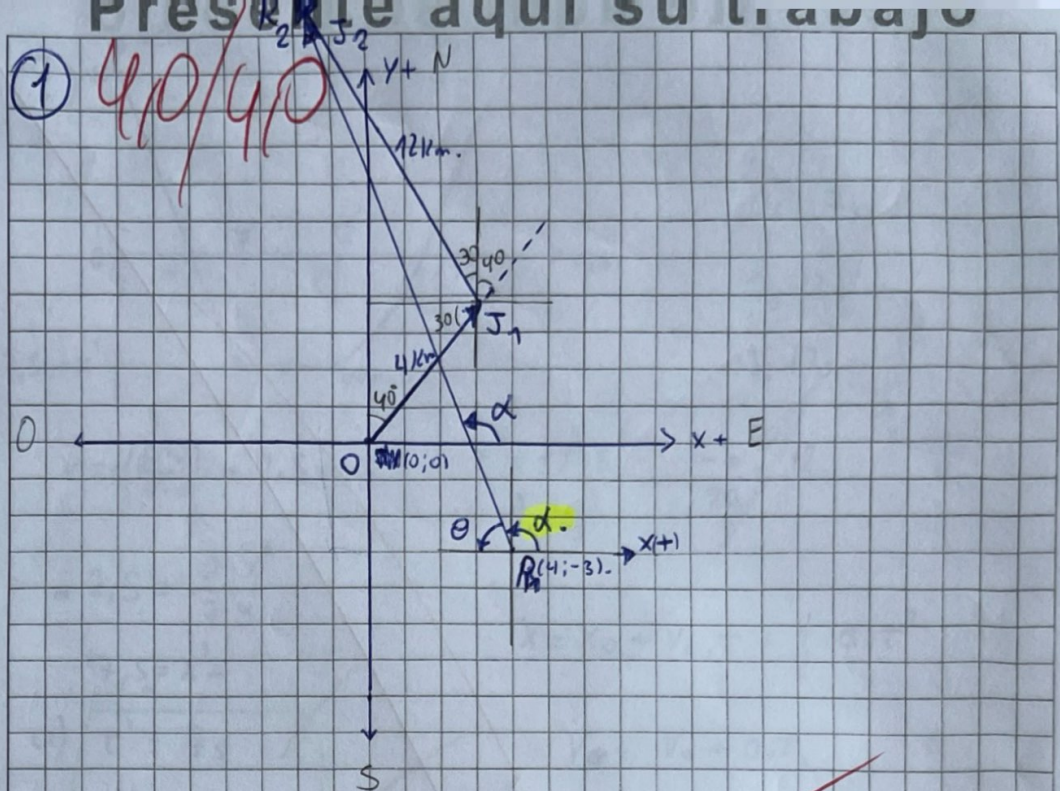 Presente aquí su trabajo
1 4,0/4,0
2 J2
Y+ N
12Km.
30 40
30 J1
4Km
40° α
O X+ E
O (0;0)
θ α.
X(+)
(4;-3).
S